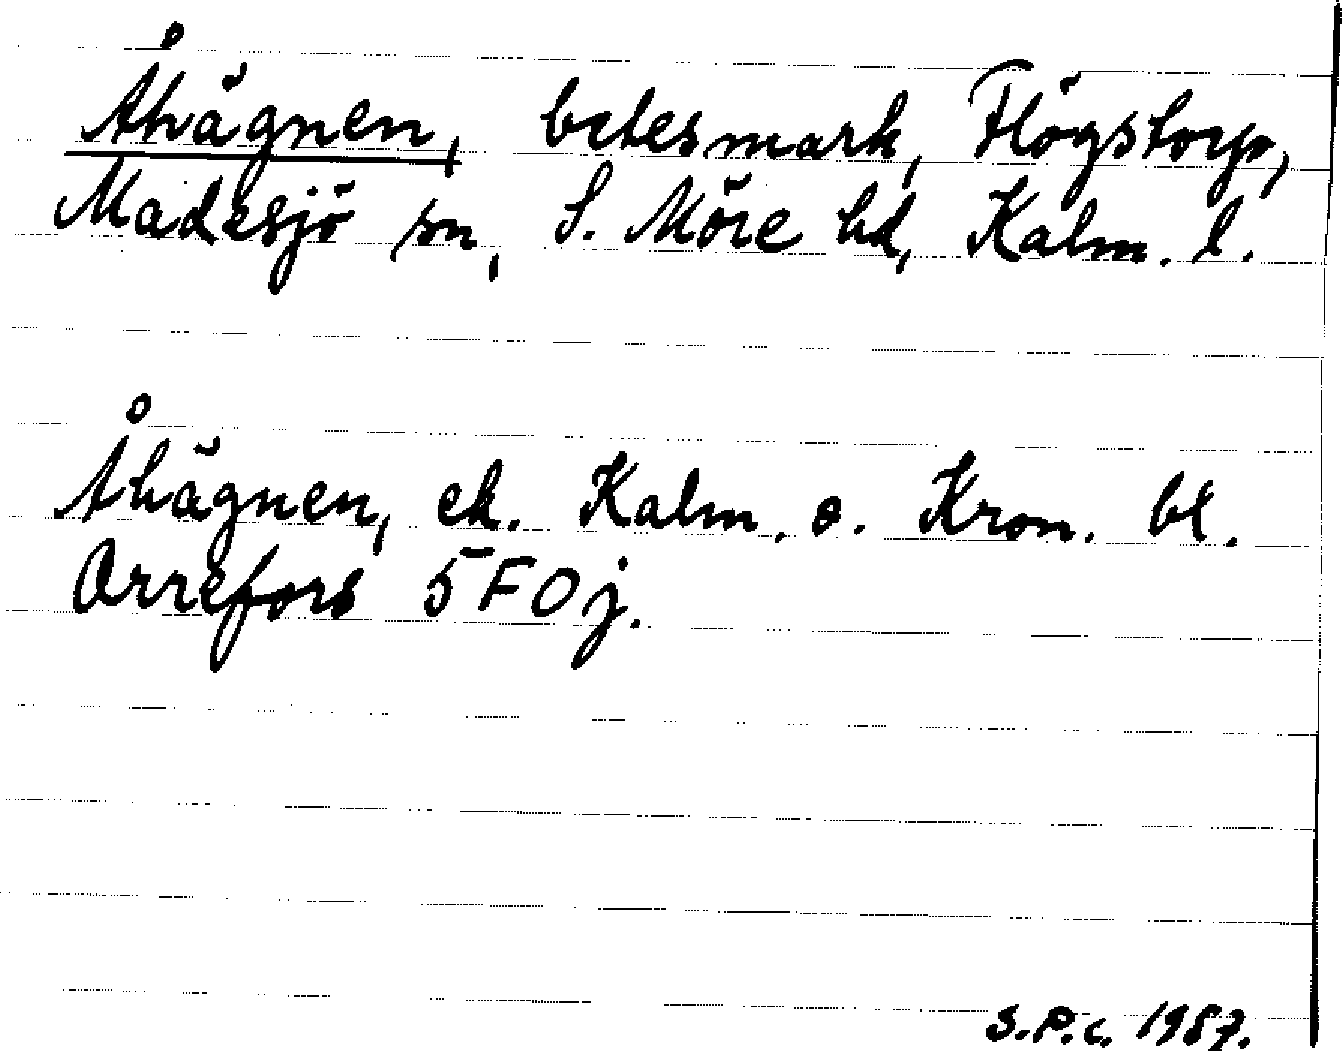 Åhägnen, betesmark, Flögstorp,
Madesjö sn, S. Möre hd, Kalm. l.
Åhägnen, ek. Kalm. o. Kron. bl.
Orrefors 5F0j.
S.P.c. 1957.